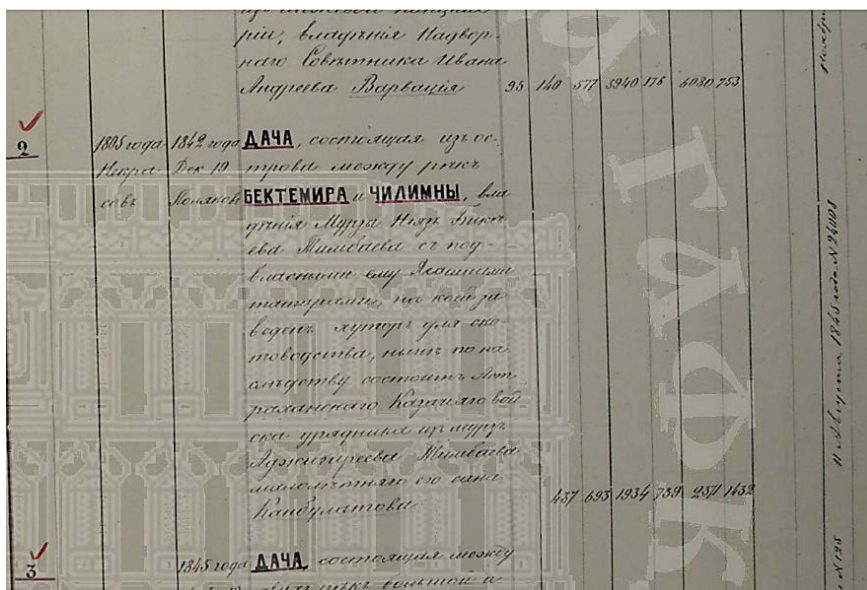 рии, владѣнія Надвор-
наго Совѣтника Ивана
Андреева Варвація 95 140 577 5940 176 6080 753
2 1805 года 1842 года ДАЧА, состоящая изъ ос-
Некра Дек 19 трова между рѣкъ
совъ Поляковъ БЕКТЕМИРА и ЧИЛИМНЫ, вла
дѣнія Мурзы
ева Тимбаева съ под-
властными ему
татарами, на коей за
веденъ хуторъ для ско-
товодства, нынѣ по на
слѣдству состоитъ Аст
раханскаго Казачьяго вой
ска урядника изъ мурзъ
Аджигиреева Тимбаева
малолѣтняго его сына
Канбулатова 437 693 1934 739 2371 1432
11 Августа 1845 года №
3 1845 года ДАЧА, состоящая между
большой и
№ 125
ГАФК